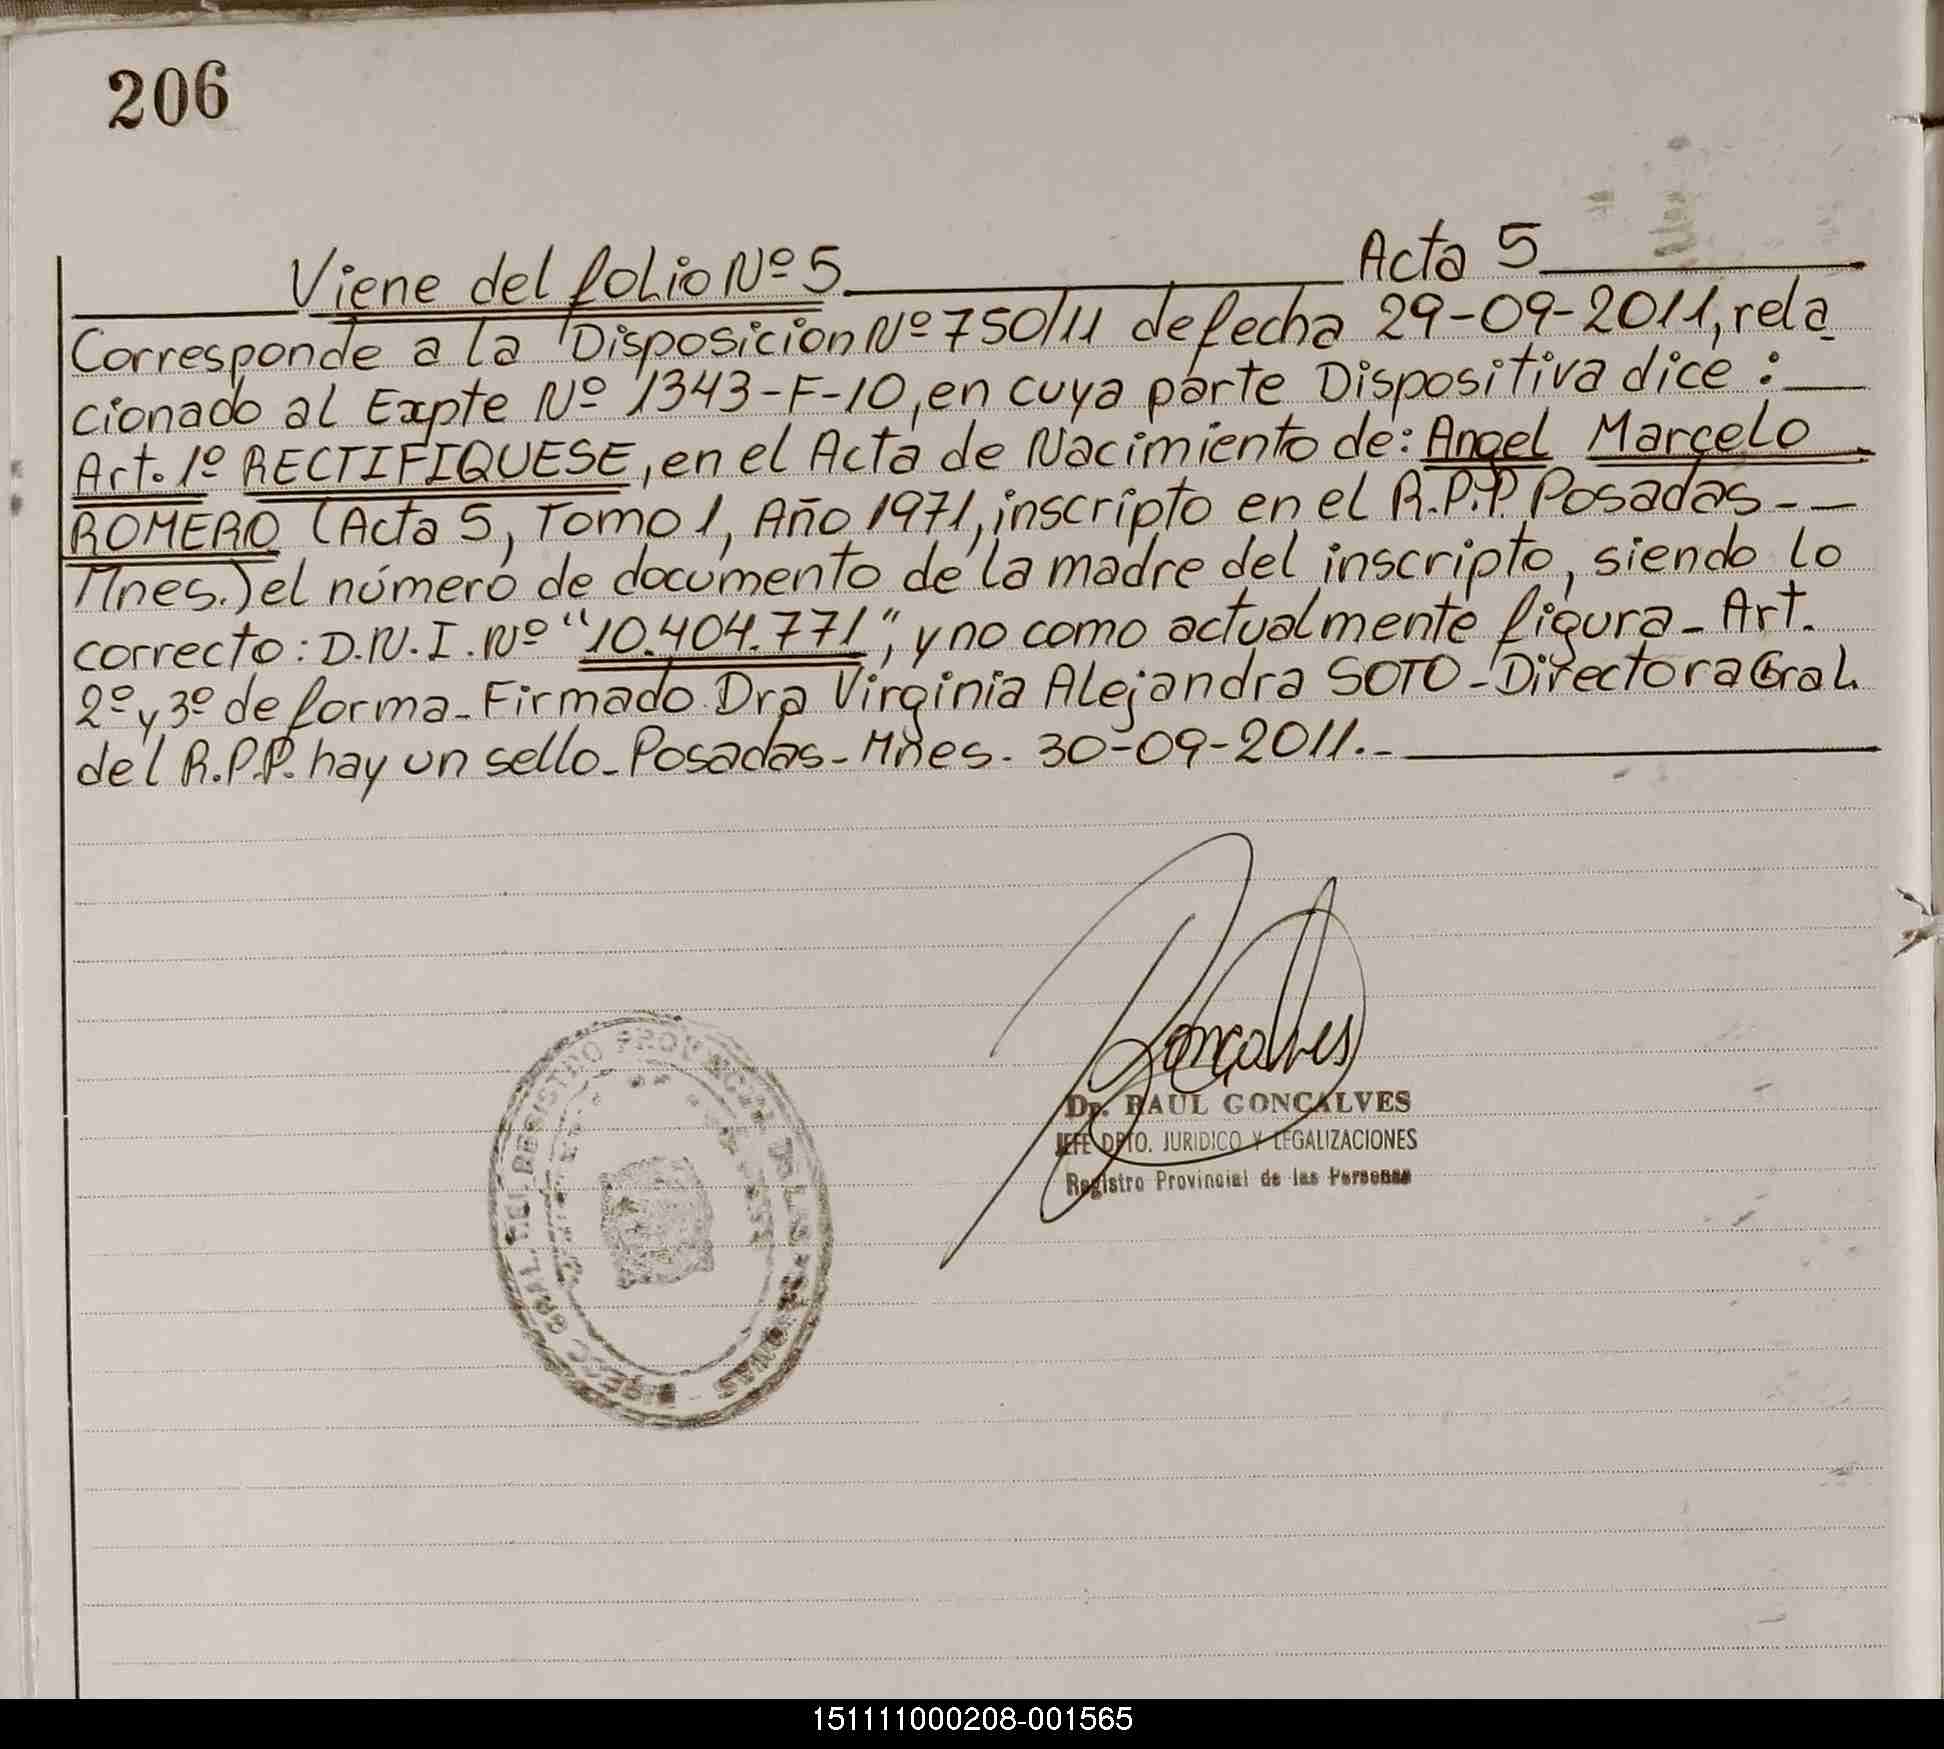 206
Viene del folio Nº 5 Acta 5
Corresponde a la Disposicion Nº 750/11 de fecha 29-09-2011, rela
cionado al Expte Nº 1343-F-10, en cuya parte Dispositiva dice:
Art. 1º RECTIFIQUESE, en el Acta de Nacimiento de: Angel Marcelo
ROMERO (Acta 5, Tomo 1, Año 1971, inscripto en el R.P.P. Posadas--
Mnes.) el número de documento de la madre del inscripto, siendo lo
correcto: D.N.I. Nº "10.404.771", y no como actualmente figura- Art.
2º y 3º de forma- Firmado Dra Virginia Alejandra SOTO- Directora Gral.
del R.P.P. hay un sello- Posadas- Mnes. 30-09-2011.-
Goncalves
Dr. RAUL GONCALVES
JEFE DPTO. JURIDICO Y LEGALIZACIONES
Registro Provincial de las Personas
DIRECC. GRAL. DEL REGISTRO PROVINCIAL DE LAS PERSONAS
151111000208-001565